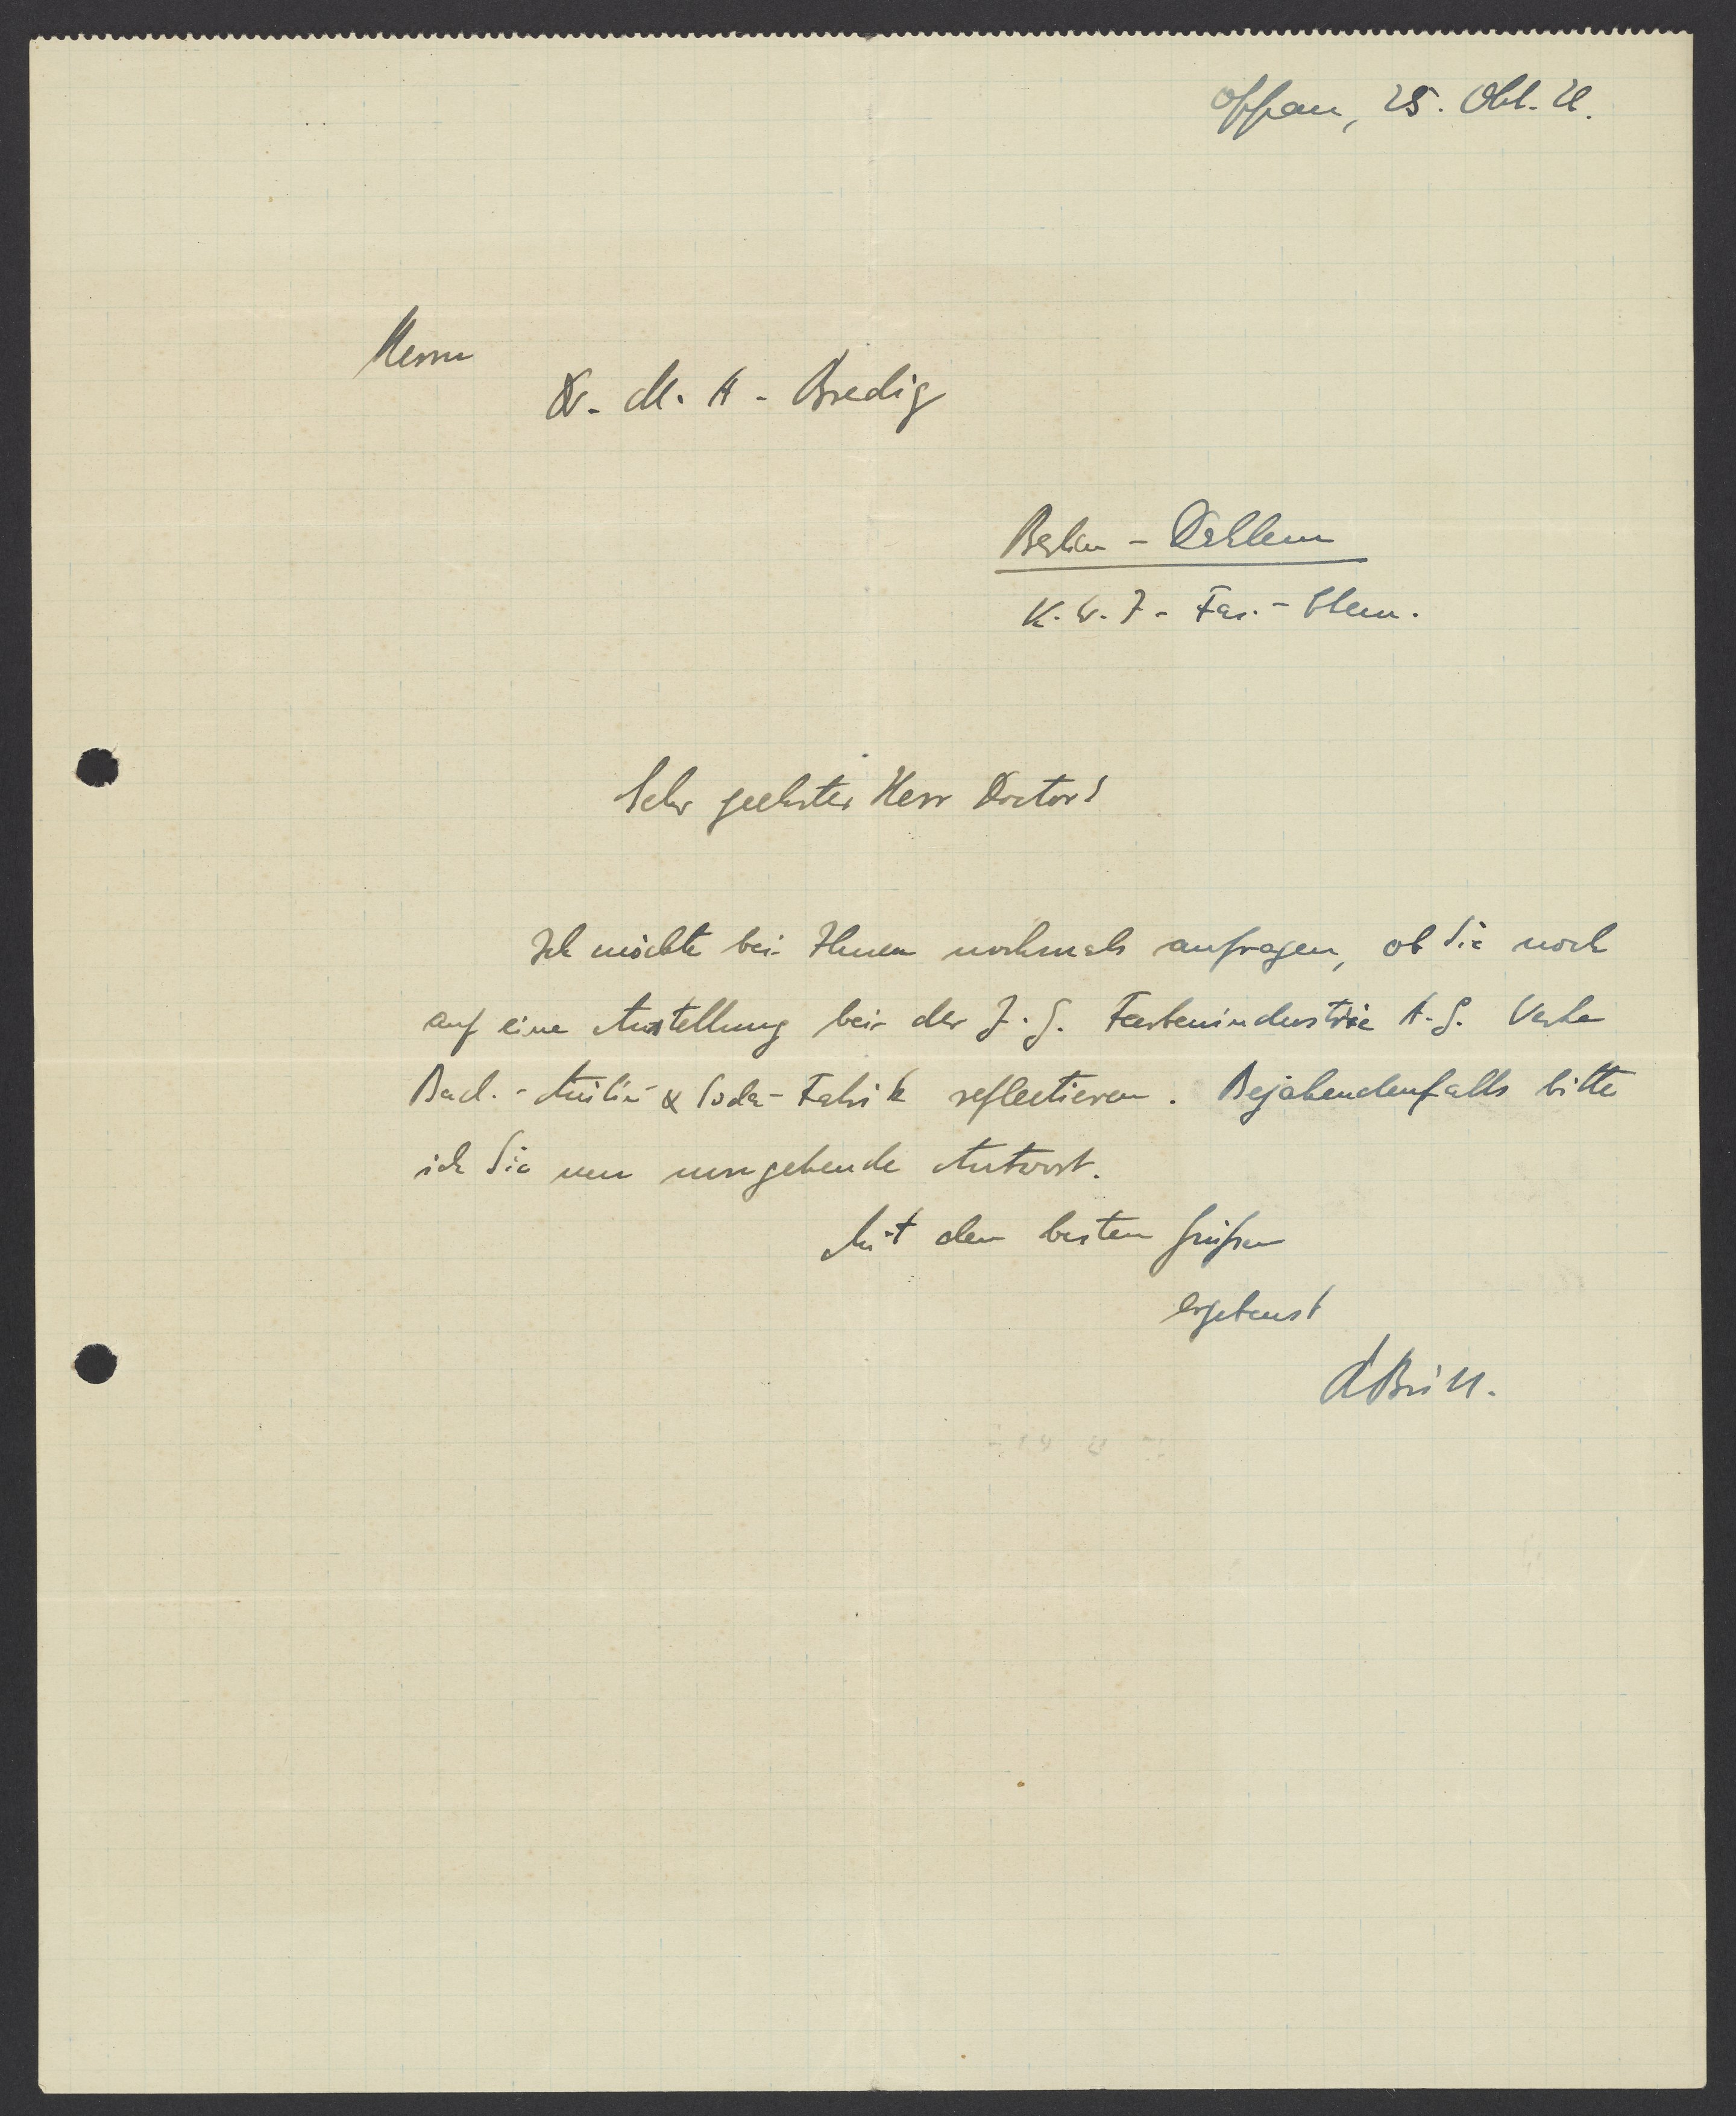 Oppau, 25. Okt. 28.
Herrn
Dr. M. A. Bredig
Berlin - Dahlem
K. W. I. - Fas. - Chem.
Sehr geehrter Herr Doctor!
Ich möchte bei Ihnen nochmals anfragen, ob Sie noch
auf eine Anstellung bei der I. G. Farbenindustrie A. G. Werke
Bad. - Anilin & Soda - Fabrik reflectieren. Bejahendenfalls bitte
ich Sie um umgehende Antwort.
Mit den besten Grüßen
ergebenst
RBrill.